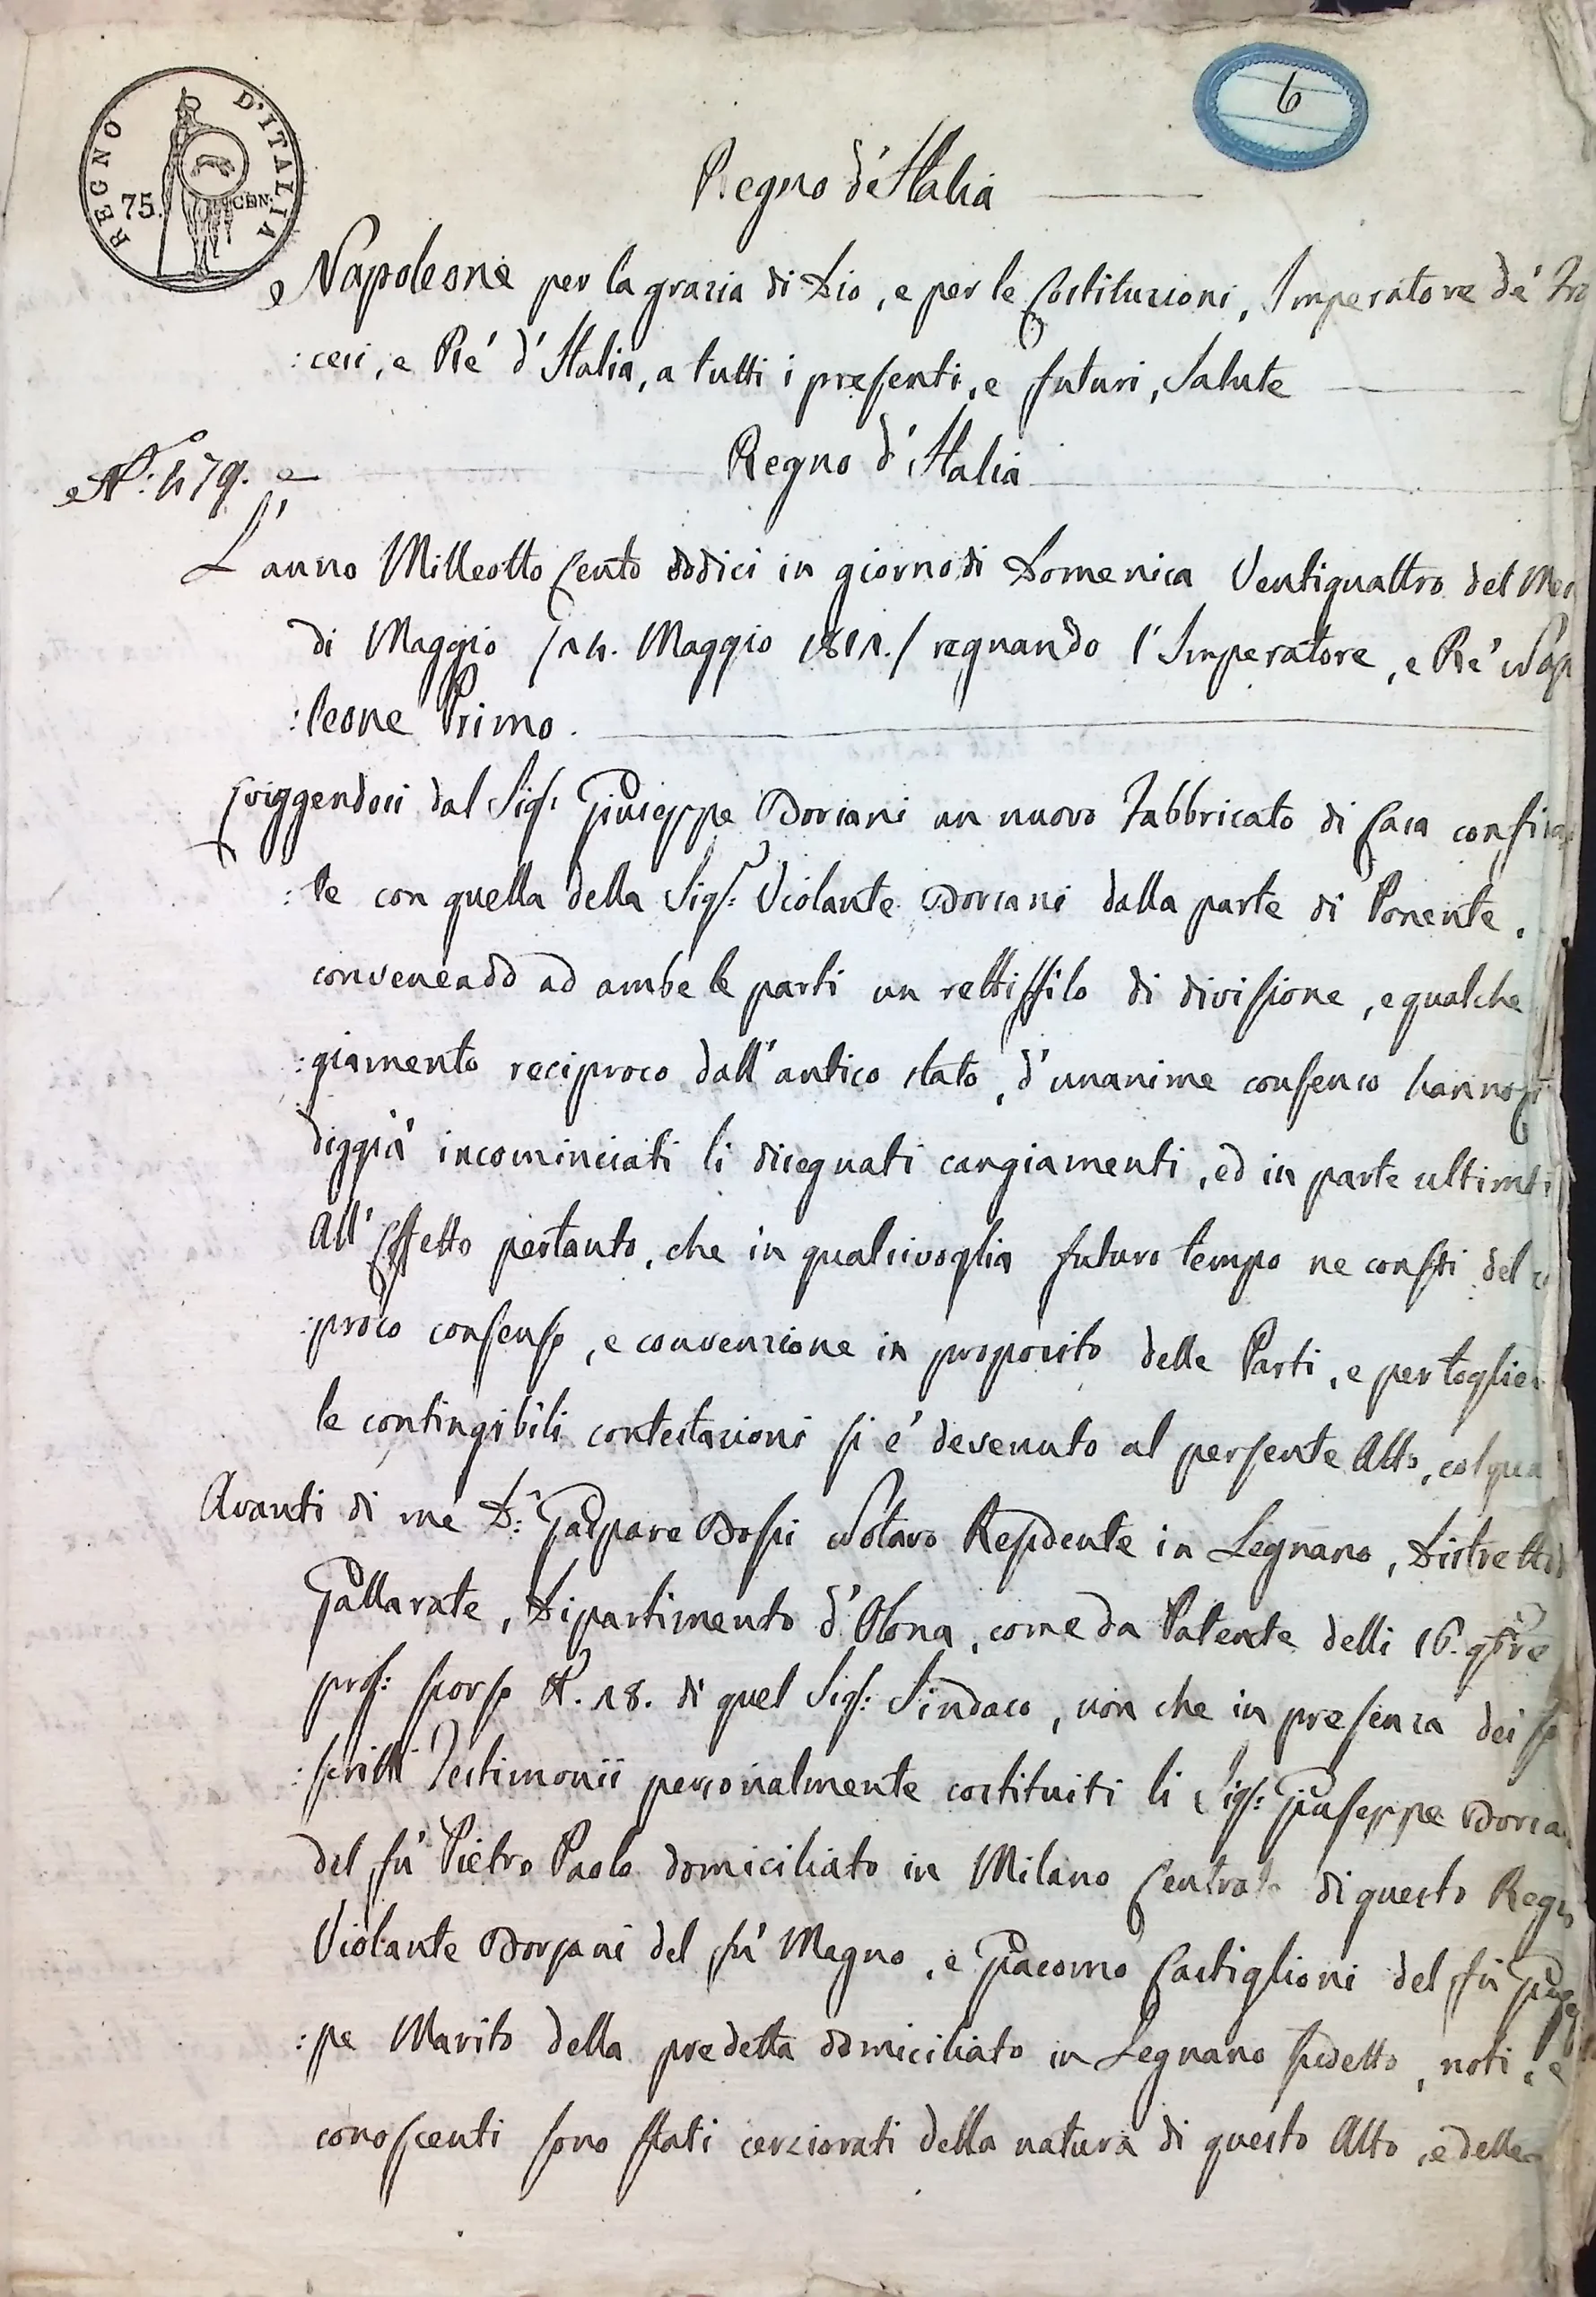 REGNO D'ITALIA
75. CEN.
6
Regno d'Italia
Napoleone per la grazia di Dio, e per le Costituzioni, Imperatore de' Fra
:cesi, e Ré d'Italia, a tutti i presenti, e futuri, Salute
N.º: 479.
Regno d'Italia
L'anno Milleotto Cento dodici in giorno di Domenica Ventiquattro del Mes
di Maggio /24. Maggio 1812./ regnando l'Imperatore, e Ré Nap
:leone Primo.
Erriggendosi dal Sig.r Giuseppe Borsani un nuovo Fabbricato di Casa confina
:te con quella della Sig.ª Violante Borsani dalla parte di Ponente,
convenendo ad ambe le parti un rettissilo di divisione, e qualche
:giamento reciproco dall'antico stato, d'unanime consenso hanno
diggià incominciati li disegnati cangiamenti, ed in parte ultimati
All'Effetto pertanto, che in qualsivoglia futuro tempo ne consti del
:proco consenso, e convenzione in proposito delle Parti, e per toglier
le contingibili contestazioni si é devenuto al persente Atto, col qua
Avanti di me D.r Gaspare Bossi Notaro Residente in Legnano, Distretto
Gallarate, Dipartimento d'Olona, come da Patente delli 16. 9bre
pros: scorso N. 28. di quel Sig.r Sindaco, non che in presenza dei
:scritti Testimonii personalmente costituiti li Sig.ri Giuseppe Borsa
del fù Pietro Paolo domiciliato in Milano Centrale di questo Regn
Violante Borsani del fù Magno, e Giacomo Castiglioni del fù Giusep
:pe Marito della predetta domiciliato in Legnano sudetto, noti, e
conoscenti sono stati cerziorati della natura di questo Atto, e delle